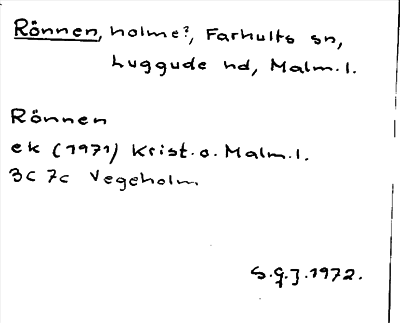 Rönnen, holme?, Farhults sn,
Luggude hd, Malm. l.
Rönnen
ek (1971) Krist. o. Malm. l.
3c 7c Vegeholm
S.G.J. 1972.